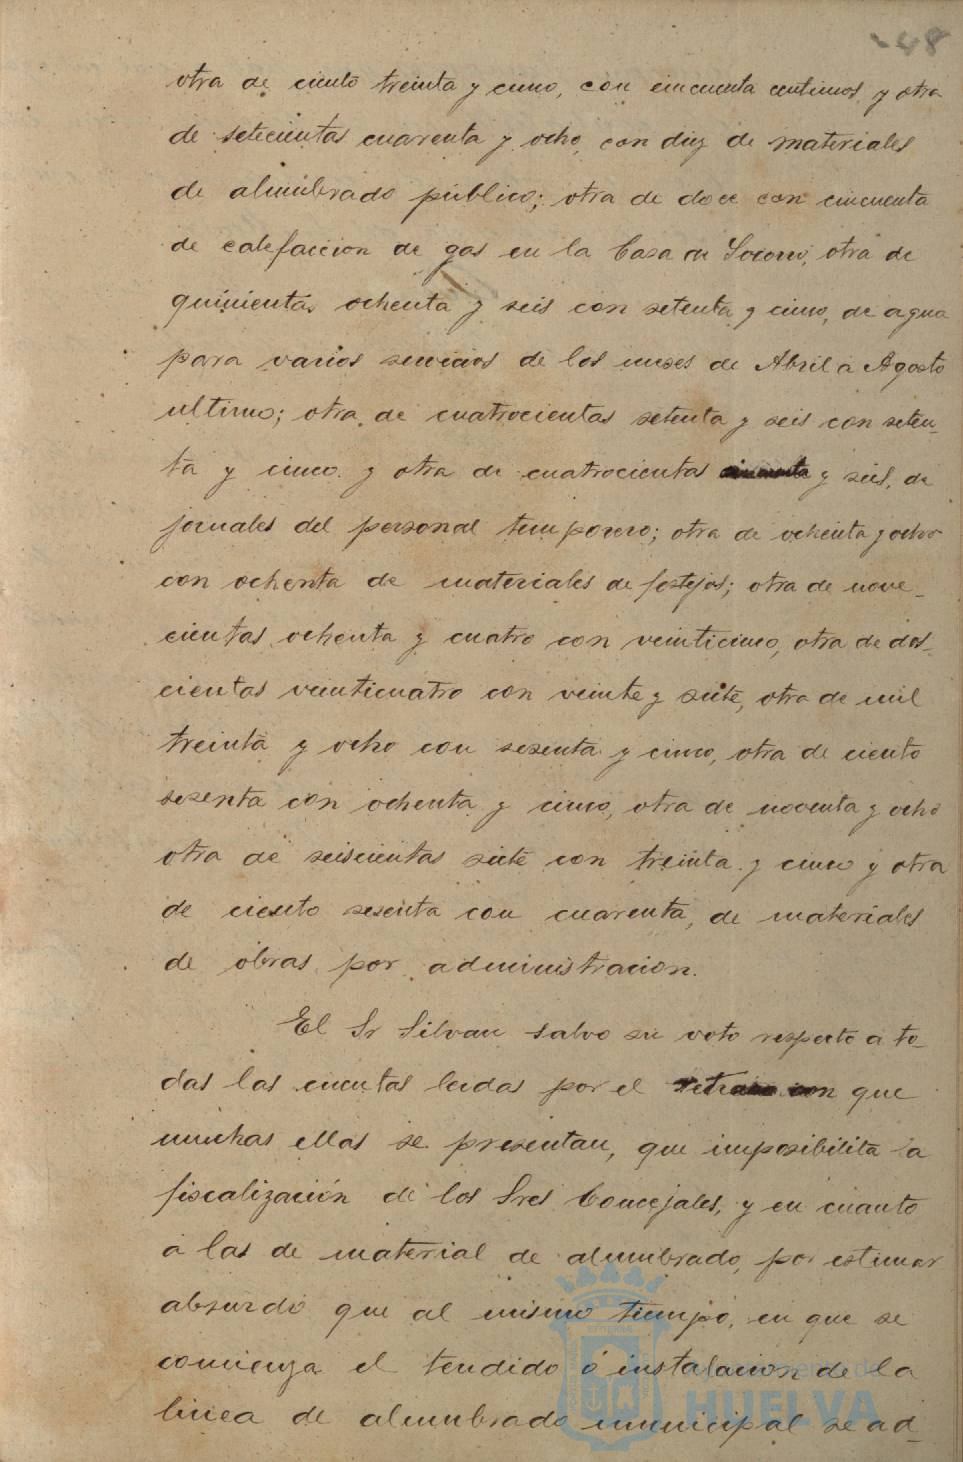 48
otra de ciento treinta y cinco, con cincuenta centimos, y otra
de setecientas cuarenta y ocho, con diez de materiales
de alumbrado público; otra de doce con cincuenta
de calefaccion de gas en la Casa de Socorro, otra de
quinientas ochenta y seis con setenta y cinco, de agua
para varios servicios de los meses de Abril a Agosto
ultimo; otra de cuatrocientas setenta y seis con seten-
ta y cinco y otra de cuatrocientas y seis, de
jornales del personal temporero; otra de ochenta y ocho
con ochenta de materiales de festejos; otra de nove-
cientas ochenta y cuatro con veinticinco, otra de dos-
cientas veinticuatro con veinte y siete, otra de mil
treinta y ocho con sesenta y cinco, otra de ciento
sesenta con ochenta y cinco, otra de noventa y ocho
otra de seiscientas siete con treinta y cinco y otra
de ciento sesenta con cuarenta, de materiales
de obras por administracion.
El Sr Silvan salvo su voto respecto a to-
das las cuentas leidas por el retraso con que
muchas ellas se presentan, que imposibilita la
fiscalización de los Sres Concejales, y en cuanto
a las de material de alumbrado, por estimar
absurdo que al mismo tiempo, en que se
comienza el tendido ó instalacion de la
linea de alumbrado municipal se ad-
Ayuntamiento de
HUELVA